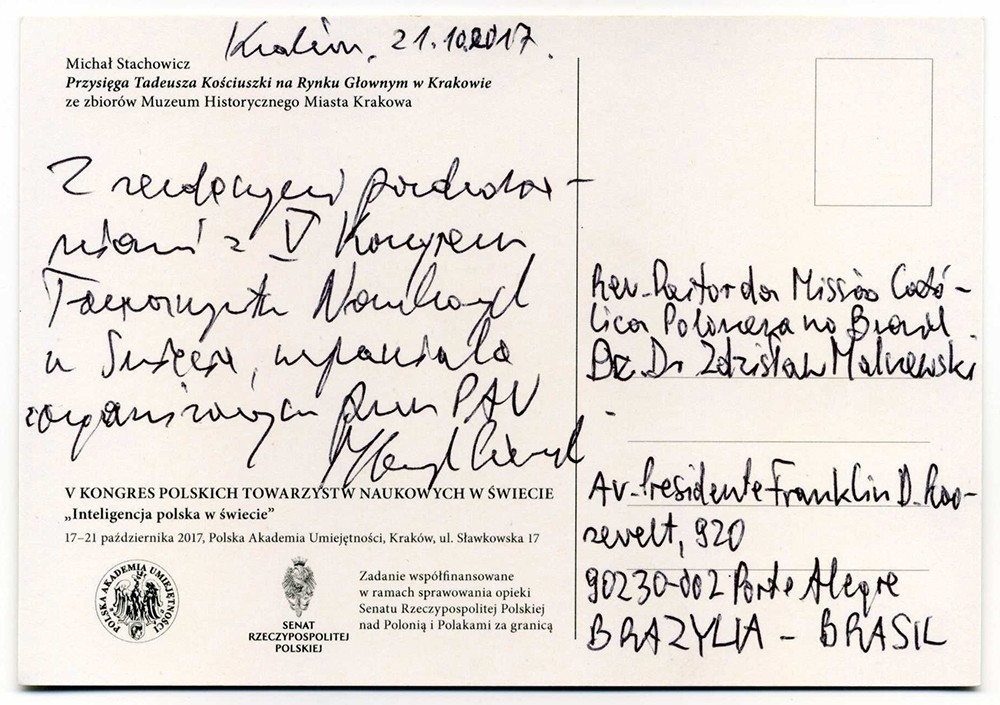 Kraków, 21.10.2017.
Michał Stachowicz
Przysięga Tadeusza Kościuszki na Rynku Głownym w Krakowie
ze zbiorów Muzeum Historycznego Miasta Krakowa
Z serdecznymi pozdrowie-
niami z V Kongresu
Towarzystw Naukowych
w Świecie, wspaniale
zorganizowanym przez PAU
V KONGRES POLSKICH TOWARZYSTW NAUKOWYCH W ŚWIECIE
„Inteligencja polska w świecie”
17–21 października 2017, Polska Akademia Umiejętności, Kraków, ul. Sławkowska 17
POLSKA AKADEMIA UMIEJĘTNOŚCI
SENAT
RZECZYPOSPOLITEJ
POLSKIEJ
Zadanie współfinansowane
w ramach sprawowania opieki
Senatu Rzeczypospolitej Polskiej
nad Polonią i Polakami za granicą
Rev. Reitor da Missão Cató-
lica Polonesa no Brasil
Dr Zdzisław Malczewski
Av. Presidente Franklin D. Roo-
sevelt, 920
90230-002 Porto Alegre
BRAZYLIA – BRASIL